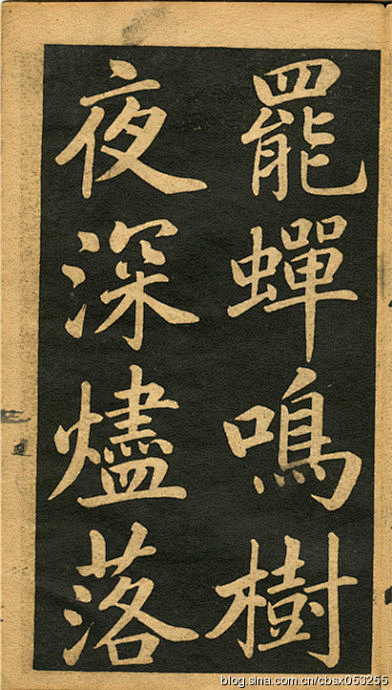 罷蟬鳴樹
夜深燼落
blog.sina.com.cn/cbsx053255